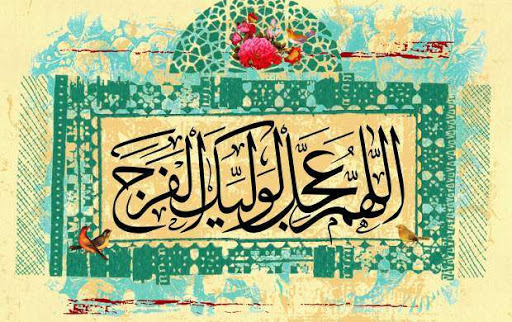 اللّهمّ عجّل لولیّک الفرج